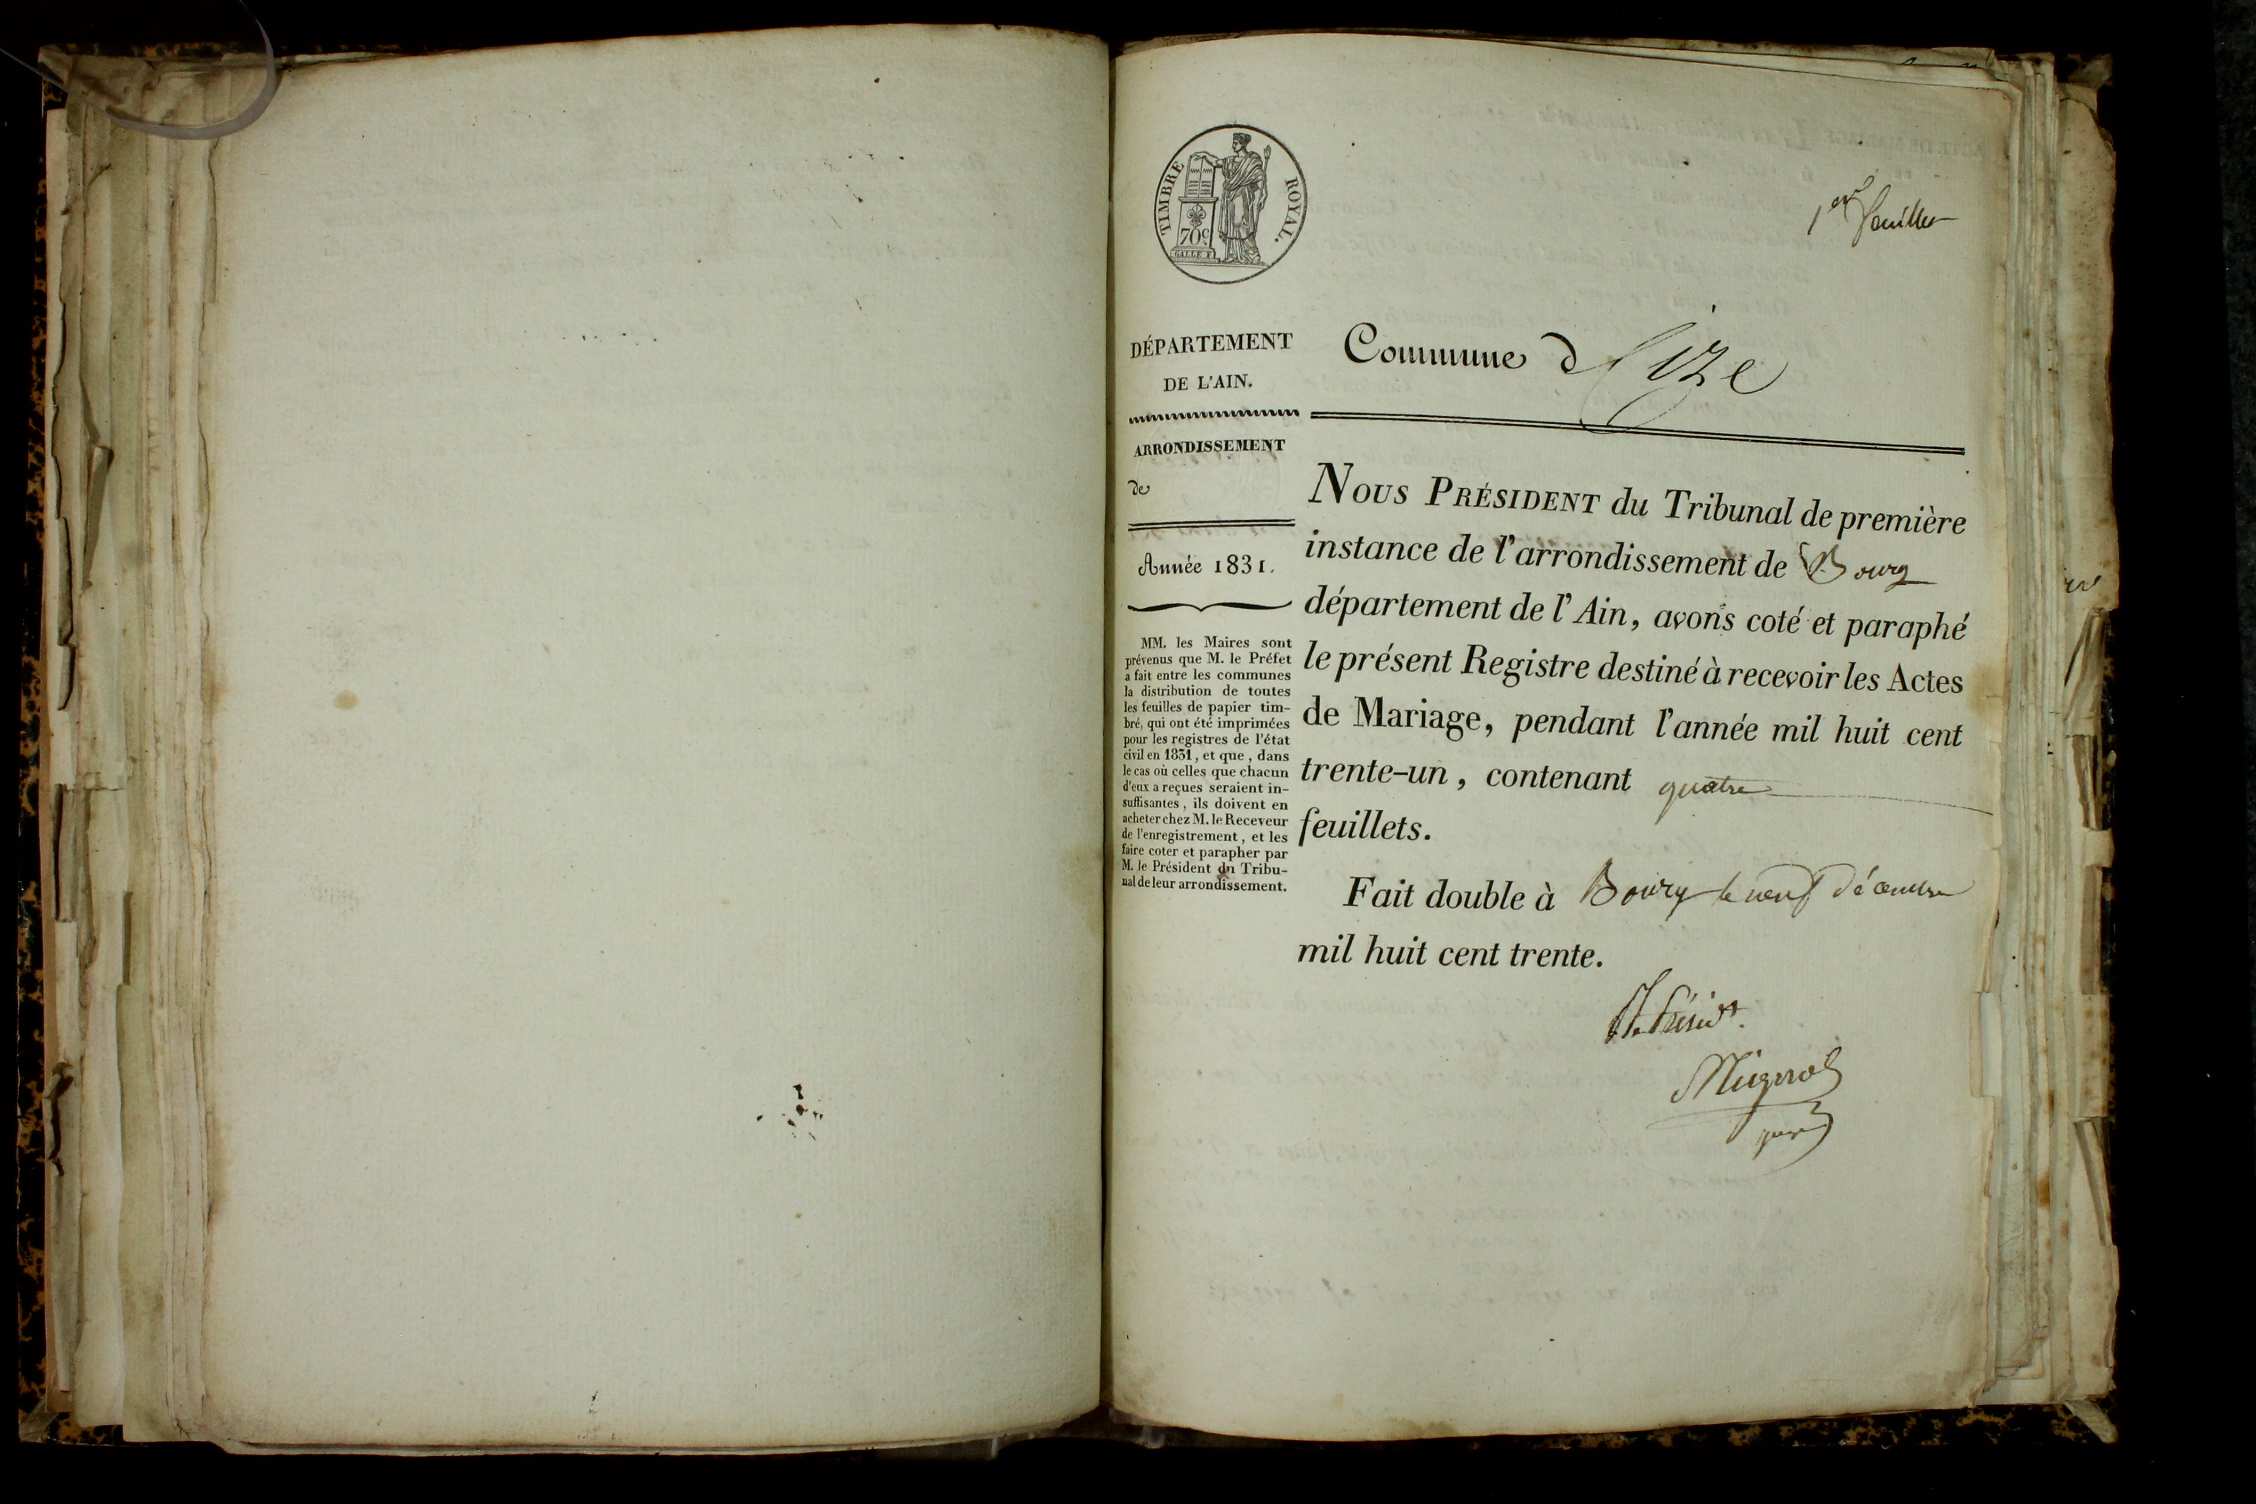 TIMBRE ROYAL.
70c.
1er feuillet
DÉPARTEMENT
DE L'AIN.
ARRONDISSEMENT
de
Année 1831.
MM. les Maires sont
prévenus que M. le Préfet
a fait entre les communes
la distribution de toutes
les feuilles de papier tim-
bré, qui ont été imprimées
pour les registres de l'état
civil en 1831, et que, dans
le cas où celles que chacun
d'eux a reçues seraient in-
suffisantes, ils doivent en
acheter chez M. le Receveur
de l'enregistrement, et les
faire coter et parapher par
M. le Président du Tribu-
nal de leur arrondissement.
Commune d Cize
NOUS PRÉSIDENT du Tribunal de première
instance de l'arrondissement de Bourg
département de l'Ain, avons coté et paraphé
le présent Registre destiné à recevoir les Actes
de Mariage, pendant l'année mil huit cent
trente-un, contenant quatre
feuillets.
Fait double à Bourg le neuf décembre
mil huit cent trente.